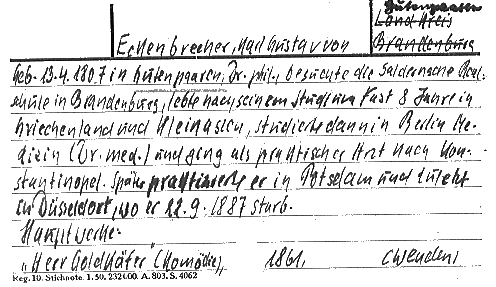 Gutenpaaren
Land Kreis
Eckenbrecher, Karl Gustav von Brandenburg
Geb. 13.4.1807 in Gutenpaaren, Dr. phil., besuchte die Saldernsche Real-
schule in Brandenburg, lebte nach seinem Studium Fast 8 Jahre in
Griechenland und Kleinasien, studierte dann in Berlin Me-
dizin (Dr. med.) und ging als praktischer Arzt nach Kon-
stantinopel. Später praktizierte er in Potsdam und zuletzt
in Düsseldorf, wo er 12.9.1887 starb.
Hauptwerke:
"Herr Goldkäfer" (Komödie), 1861, (Wenden)
Reg. 10. Stichnote. 1. 50. 232000. A. 803. S. 4062